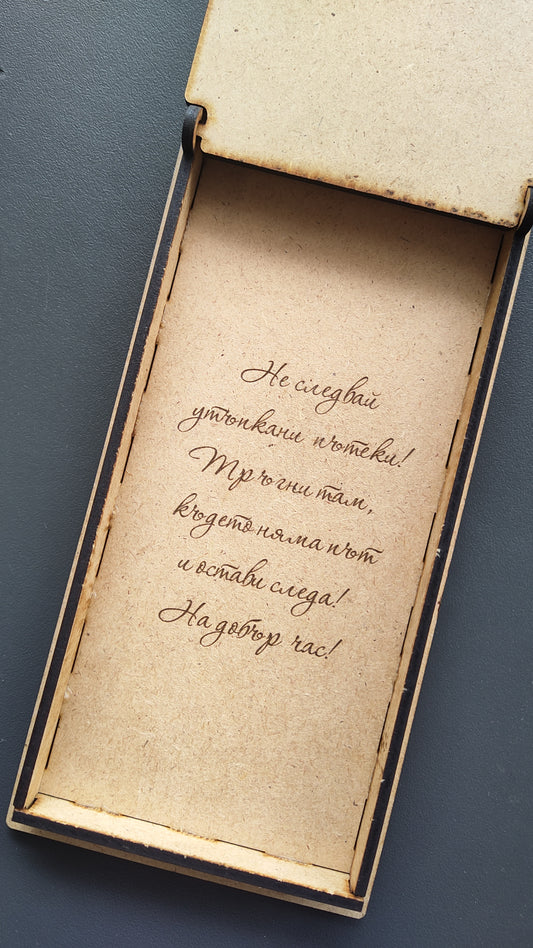 Не следвай
утъпкани пътеки!
Тръгни там,
където няма път
и остави следа!
На добър час!